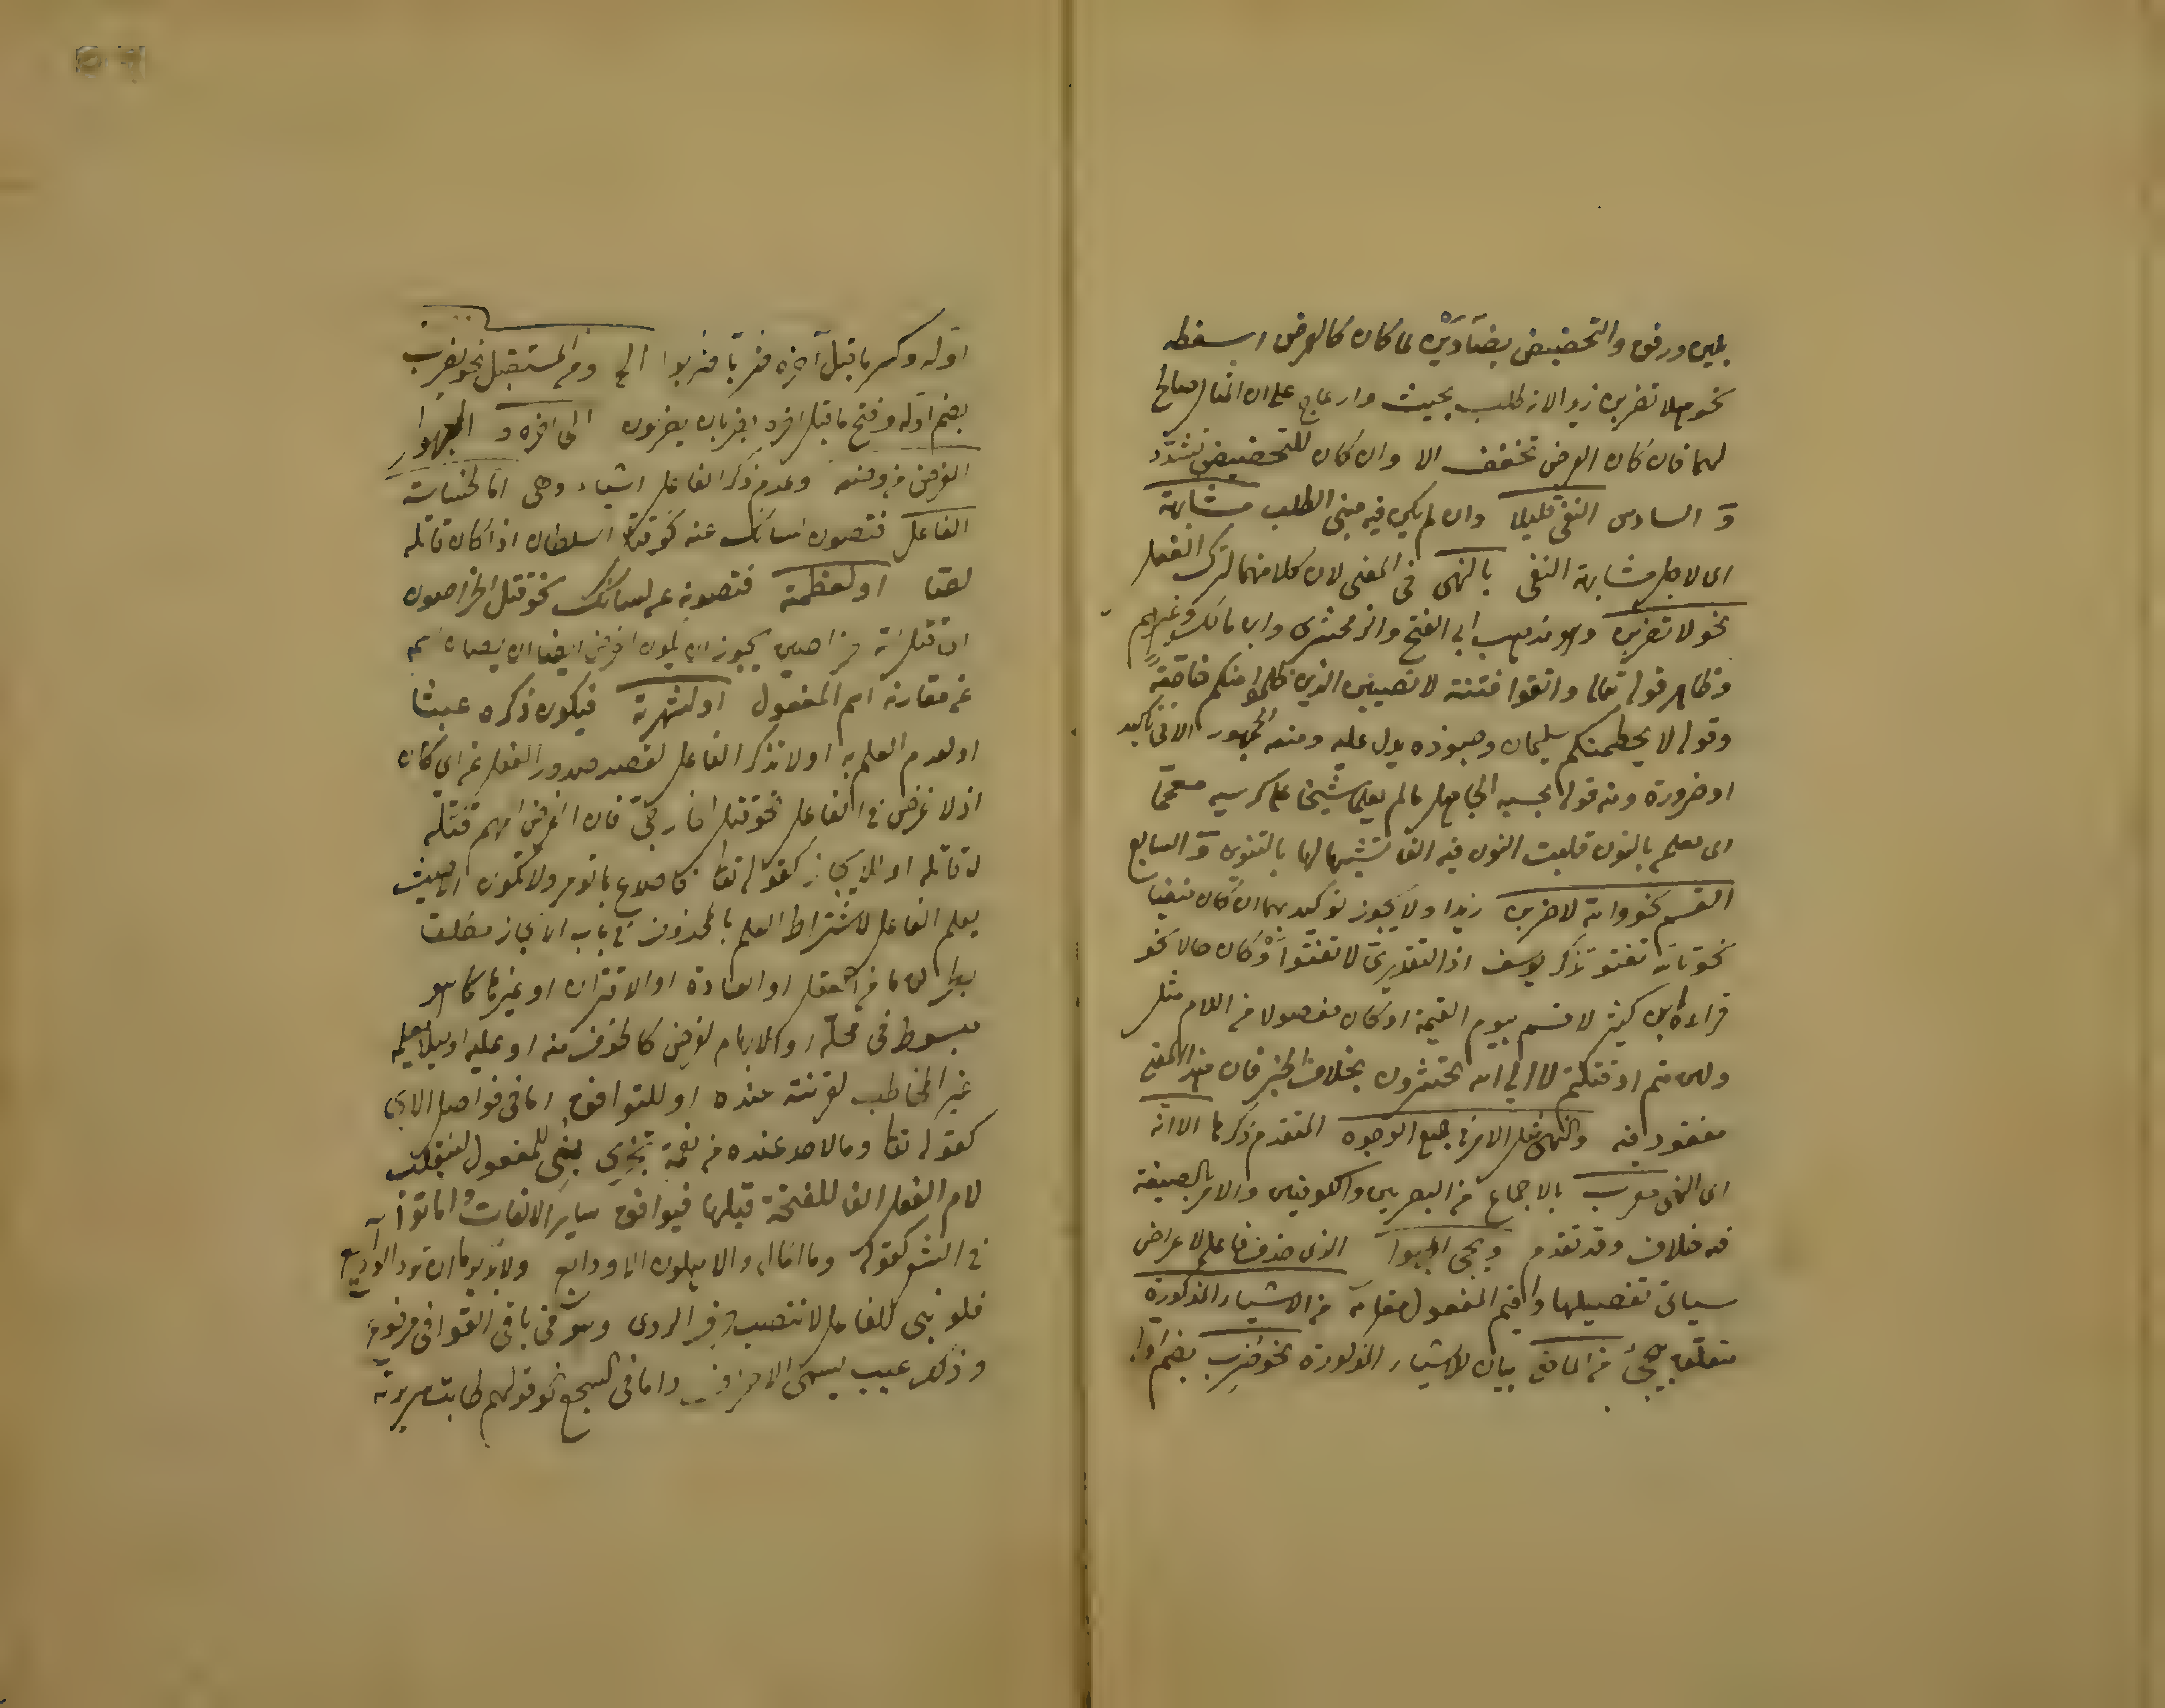 بلين ورفق والتحضيض بضادين لما كان كالعرض اسقطه
نحو هلا تضربن زيدا لانه طلب بحيث وازعاج على ان المثال صالح
لهما فان كان العرض تخفف الا وان كان للتحضيض تشدد
و السادس النفي قليلا وان لم يكن فيه معنى الطلب مشابهة
اى لاجل مشابهة النفى بالنهى فى المعنى لان كلا منهما لترك الفعل
نحو لا تضربن وهو مذهب ابى الفتح والزمخشرى وابن مالك وغيرهم
وظاهر قوله تعالى واتقوا فتنة لا تصيبن الذين ظلموا منكم خاصة
وقوله لا يحطمنكم سليمان وجنوده يدل عليه ومنعه الجمهور الا فى تأكيد
او ضرورة ومنه قوله يحسبه الجاهل مالم يعلما شيخا على كرسيه معمما
اى يعلم بالنون قلبت النون فيه الفا تشبيها لها بالتنوين و السابع
القسم نحو والله لاضربن زيدا ولا يجوز توكيد بهما ان كان منفيا
نحو تالله تفتؤ تذكر يوسف اذ التقدير لا تفتؤا او كان حالا نحو
قراءة ابن كثير لاقسم بيوم القيمة او كان مفصولا من اللام مثل
ولئن متم او قتلتم لا الى الله تحشرون بخلاف الخبر فان هذا المعنى
مفقود فيه والنهى مثل الامر فى جميع الوجوه المتقدم ذكرها الا انه
اى النهى معرب بالاجماع من البصريين والكوفيين والامر بالصيغة
فيه خلاف وقد تقدم ويجئ المجهول الذى حذف فاعله لاغراض
سيأتى تفصيلها واقيم المفعول مقامه من الاشياء المذكورة
متعلق بيجئ من الماضى بيان للاشياء المذكورة نحو ضرب بضم اوله
اوله وكسر ما قبل آخره ضربا ضربوا الخ ومن المستقبل نحو يضرب
بضم اوله وفتح ما قبل اخره يضربان يضربون الى اخره و المجهول
الغرض من وضعه وعدم ذكر الفاعل اشياء وهى اما لخساسة
الفاعل فتصون لسانك عنه نحو قتل السلطان اذا كان قاتله
لصا او لعظمته فتصونه عن لسانك نحو قتل الخراصون
اى قتل الله خراصين يجوز ان يكون الغرض ايضا ان يصان اسمه
عن مقارنة اسم المفعول او لشهرته فيكون ذكره عبثا
او لعدم العلم به او لا تذكر الفاعل لقصد صدور الفعل عن اى كان
اذ لا غرض فى الفاعل نحو قتل الخارجى فان الغرض المهم قتله
لا قاتله او للايجاز كقوله تعالى فاصدع بما تؤمر ولا تكون الا حيث
يعلم الفاعل لاشتراط العلم بالمحذوف فى باب الايجاز مطلقا
مبسوط فى محله او للابهام لغرض كالخوف منه او عليه او لئلا يعلمه
غير المخاطب لقرينة عنده او للتوافق اما فى فواصل الآى
كقوله تعالى وما لاحد عنده من نعمة تجزى بنى للمفعول لينقلب
لام الفعل الفا للفتحة قبلها فيوافق سائر الالفات واما
فى الشعر كقوله وما المال والاهلون الا ودايع ولا بد يوما ان ترد الودايع
فلو بنى للفاعل لانتصب حرف الروى وهو فى باقى القوافى مرفوع
وذلك عيب يسمى واما فى السجع نحو قولهم طابت سريرته